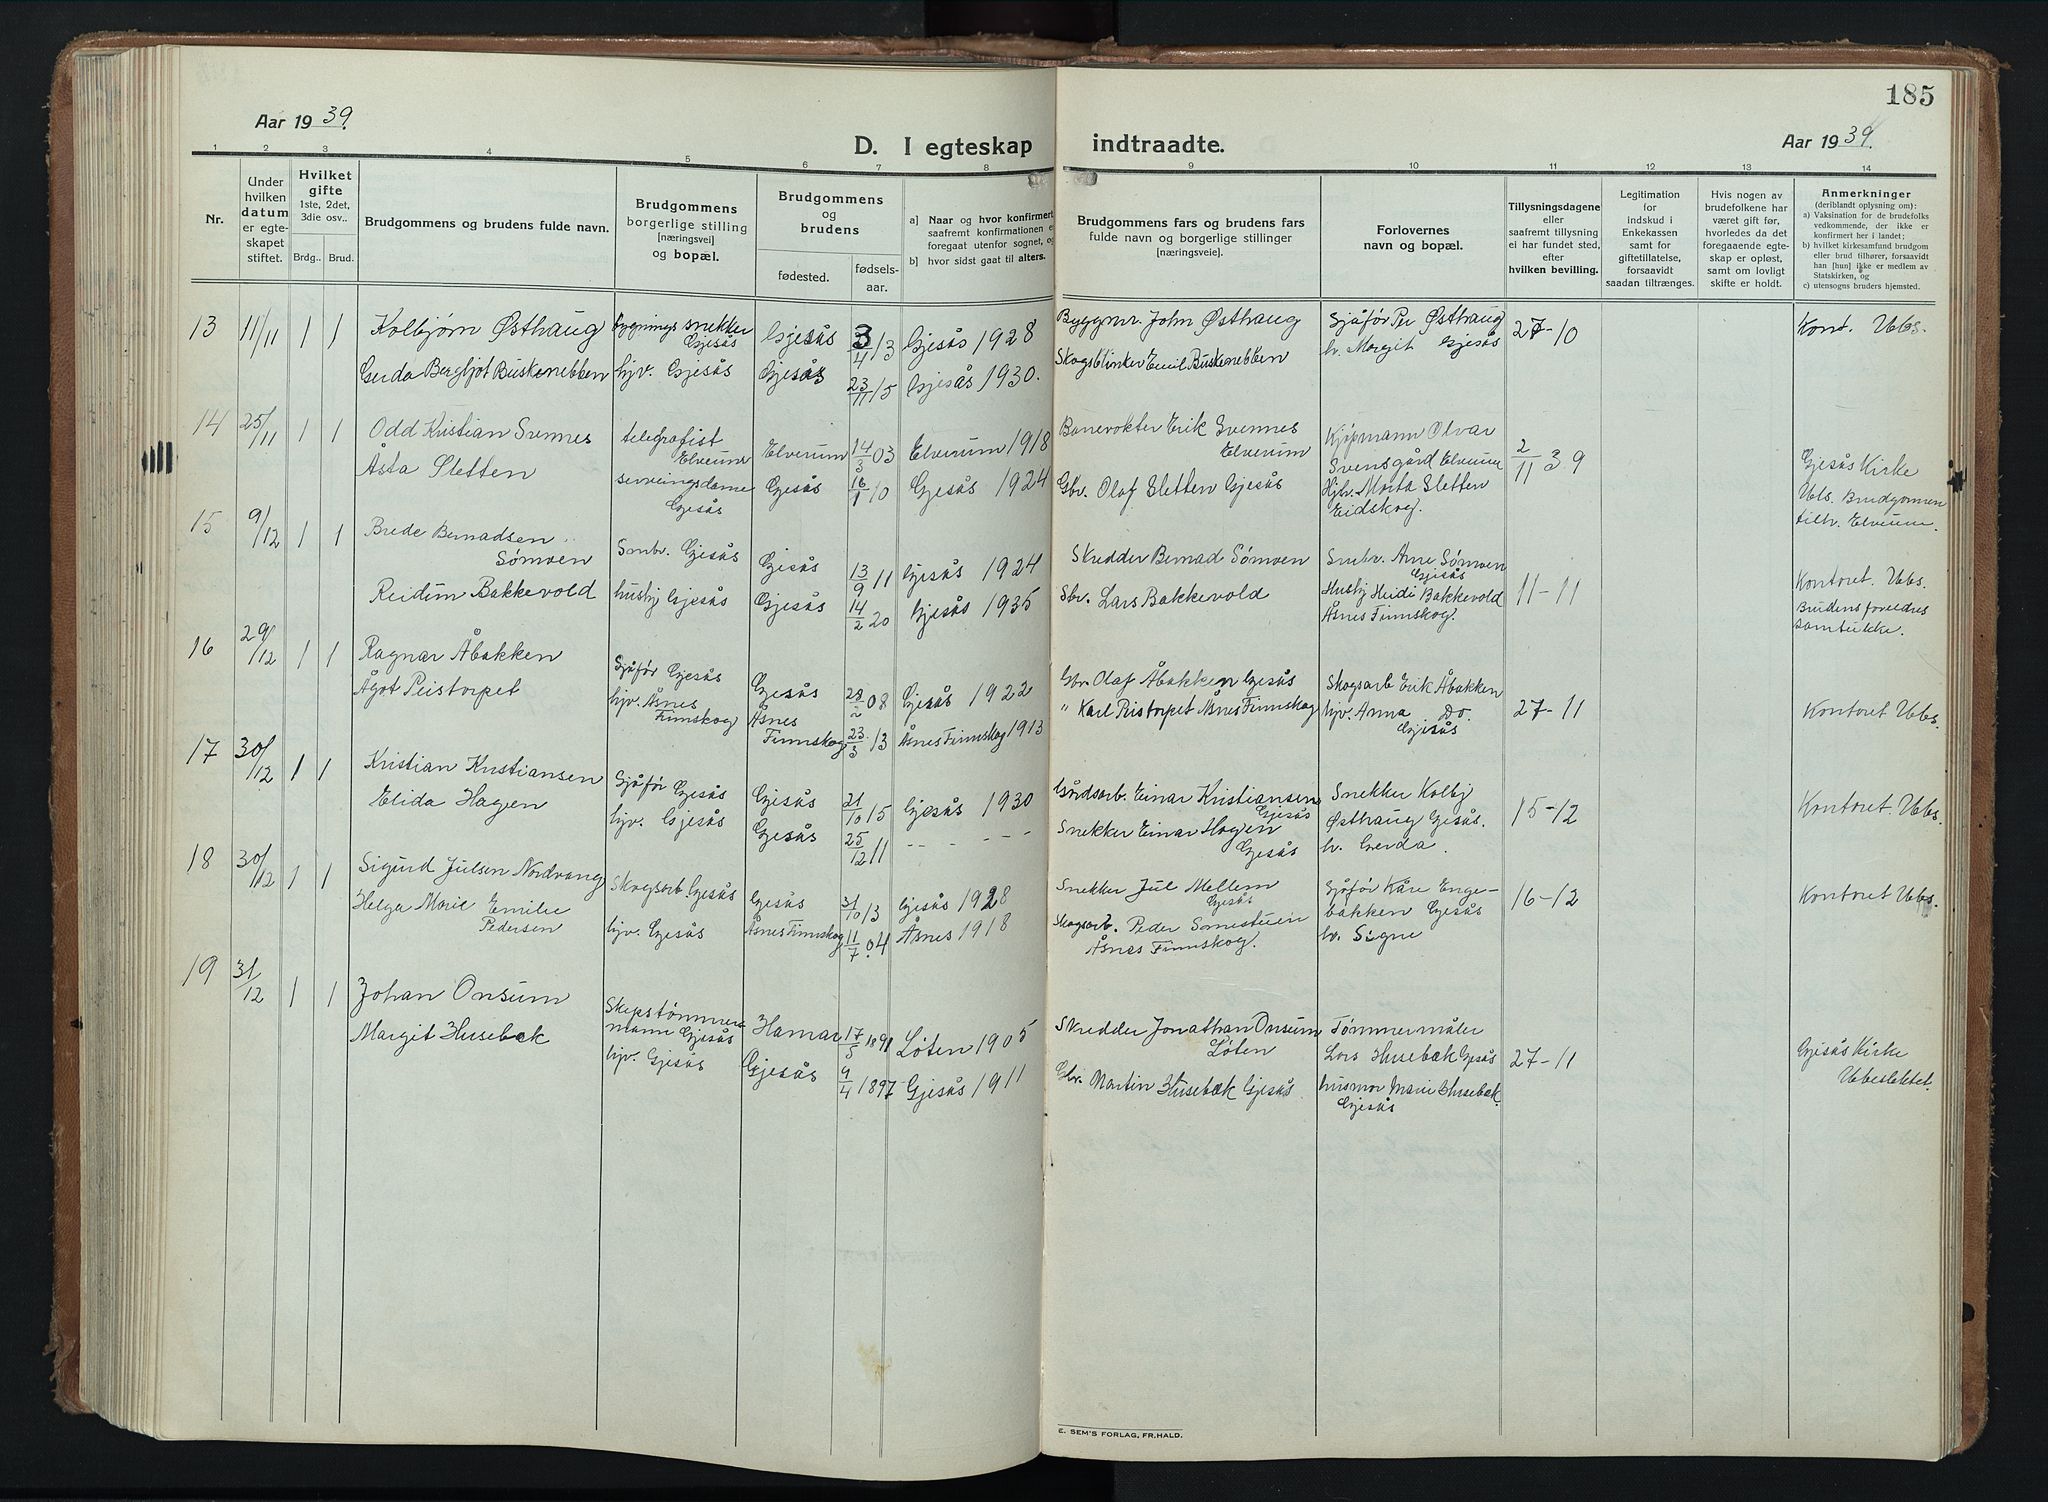 185
Aar 1939.
D. I egteskap indtraadte.
Aar 1939.
1 2 3 4 5 6 7 8 9 10 11 12 13 14
Nr.
Under hvilken datum er egteskapet stiftet.
Hvilket gifte 1ste, 2det, 3die osv..
Brdg.. Brud.
Brudgommens og brudens fulde navn.
Brudgommens borgerlige stilling [næringsvei] og bopæl.
Brudgommens og brudens
fødested.
fødsels-aar.
a) Naar og hvor konfirmert, saafremt konfirmationen er foregaat utenfor sognet, og
b) hvor sidst gaat til alters.
Brudgommens fars og brudens fars fulde navn og borgerlige stillinger [næringsveie].
Forlovernes navn og bopæl.
Tillysningsdagene eller saafremt tillysning ei har fundet sted, efter hvilken bevilling.
Legitimation for indskud i Enkekassen samt for giftetillatelse, forsaavidt saadan tiltrænges.
Hvis nogen av brudefolkene har været gift før, hvorledes da det foregaaende egteskap er opløst, samt om lovlig skifte er holdt.
Anmerkninger (deriblandt oplysning om):
a) Vaksination for de brudefolks vedkommende, der ikke er konfirmert her i landet;
b) hvilket kirkesamfund brudgom eller brud tilhører, forsaavidt han [hun] ikke er medlem av Statskirken, og
c) utensogns bruders hjemsted.
13 11/11 1 1 Kolbjørn Østhaug bygnings snekker Gjesås Gjesås 3/4 13 Gjesås 1928 Byggmr. John Østhaug Sjåfør Per Østhaug 27-10 Kont. Vbs.
Gerda Bergljot Buskenebben hjv. Gjesås Gjesås 23/11 15 Gjesås 1930. Skogsblinker Emil Buskenebben h. Margit Gjesås
14 25/11 1 1 Odd Kristian Svennes telegrafist Elverum Elverum 14/3 03 Elverum 1918 Banevokter Erik Svennes Elverum Kjøpmann Olvar Svensgård Elverum 2/11 39 Gjesås Kirke
Åsta Sletten serveringsdame Gjesås Gjesås 16/1 10 Gjesås 1924 Gbr. Olaf Sletten Gjesås Hjv. Marta Sletten Eidskog. Vbs. Brudgommen tilh. Elverum.
15 9/12 1 1 Brede Bernadsen Sømoen Smbr. Gjesås Gjesås 13/9 11 Gjesås 1924 Skredder Bernad Sømoen Smbr. Arne Sømoen Gjesås 11-11 Kontoret. Vbs.
Reidun Bakkevold hushj Gjesås Gjesås 14/2 20 Gjesås 1935 Sbr. Lars Bakkevold Hushj Heidi Bakkevold Åsnes Finnskog. Brudens foreldres samtykke.
16 29/12 1 1 Ragnar Åbakken Sjåfør Gjesås Gjesås 28/2 08 Gjesås 1922 Gbr. Olaf Åbakken Gjesås Skogsarb Erik Åbakken 27-11 Kontoret Vbs.
Ågot Peistorpet hjv. Åsnes Finnskog Åsnes Finnskog 23/3 13 Åsnes Finnskog 1913 " Karl Ristorpet Åsnes Finnskog hjv. Anna Do. Gjesås
17 30/12 1 1 Kristian Kristiansen Sjåfør Gjesås Gjesås 21/10 15 Gjesås 1930 Gårdsarb. Einar Kristiansen Gjesås Snekker Kolbj Østhaug Gjesås. 15-12 Kontoret. Vbs.
Elida Hagen hjv. Gjesås Gjesås 25/12 11 - - - - Snekker Einar Hagen Gjesås h. Gerda.
18 30/12 1 1 Sigurd Julsen Nordvang Skogsarb. Gjesås Gjesås 31/10 13 Gjesås 1928 Snekker Jul Mellem Gjesås Sjåfør Kåre Engebakken Gjesås 16-12 Kontoret Vbs.
Helga Marie Emilie Pedersen hjv. Gjesås Åsnes Finnskog 11/7 04 Åsnes 1918 Skogsarb. Peder Åsnes Finnskog. h. Signe
19 31/12 1 1 Johan Onsum Skipstømmermann Gjesås Hamar 17/5 1891 Løten 1905 Skredder Jonathan Onsum Løten Tømmermåler Lars Husebæk Gjesås 27-11 Gjesås Kirke
Margit Husebæk hjv. Gjesås Gjesås 9/4 1897 Gjesås 1911 Gbr. Martin Husebæk Gjesås husmor Marie Husebæk. Gjesås Vbeslektet.
E. SEM'S FORLAG, FR.HALD.